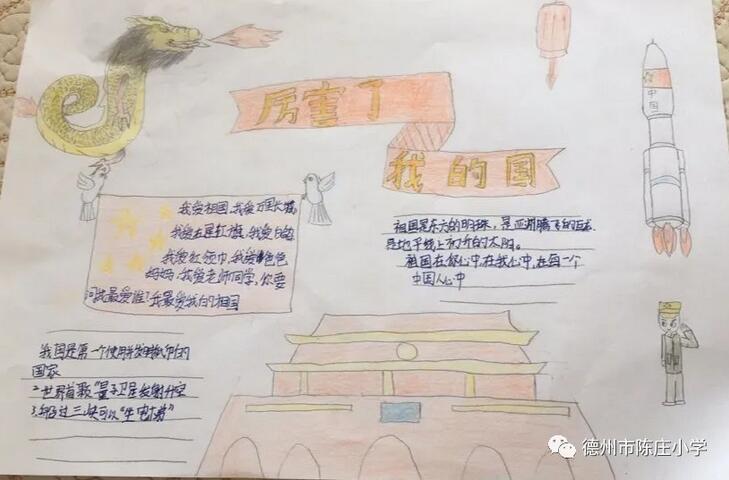 厉害了
我的国
中国
我爱祖国,我爱万里长城
我爱五星红旗,我爱白鸽
我爱红领巾,我爱爸爸
妈妈,我爱老师同学,你要
问我最爱谁?我最爱我的祖国
祖国是东方的明珠,是亚洲腾飞的巨龙
是地平线上初升的太阳。
祖国在你心中在我心中,在每一个
中国人心中
我国是第一个使用并发明
国家
2.世界首颗"量子卫星发射升空
德州市陈庄小学